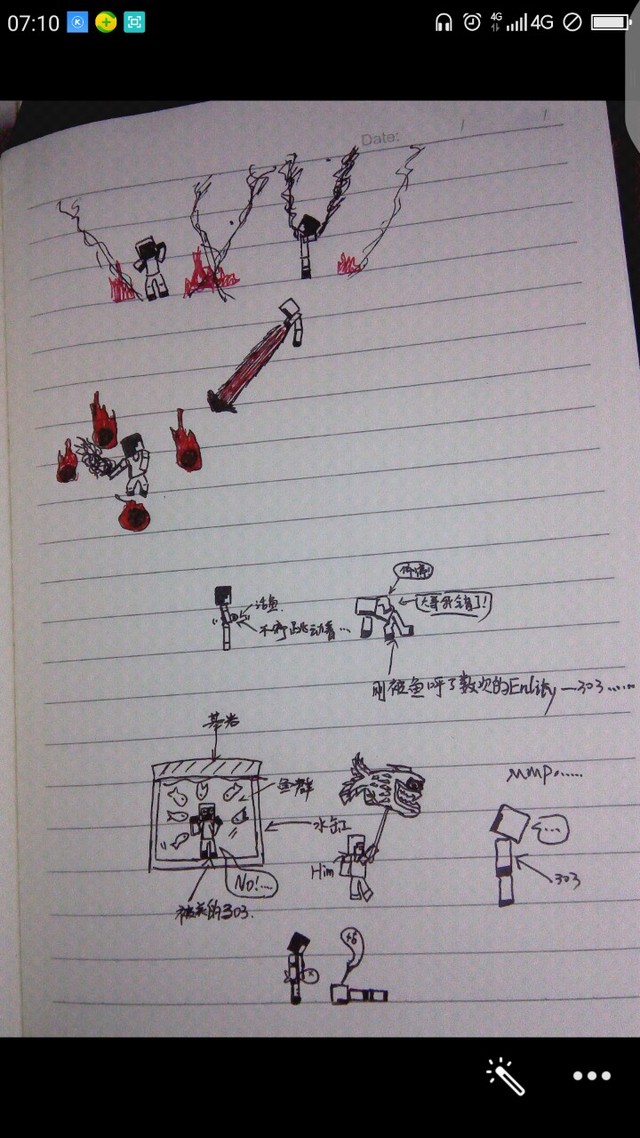 07:10
4G
4G
Date: / /
活鱼
不停跳动着…
大哥我错了!
刚被鱼呼了数次的Entity—303……
基岩
鱼群
水缸
No!…
被关的303.
Him
MMP……
…
303
×